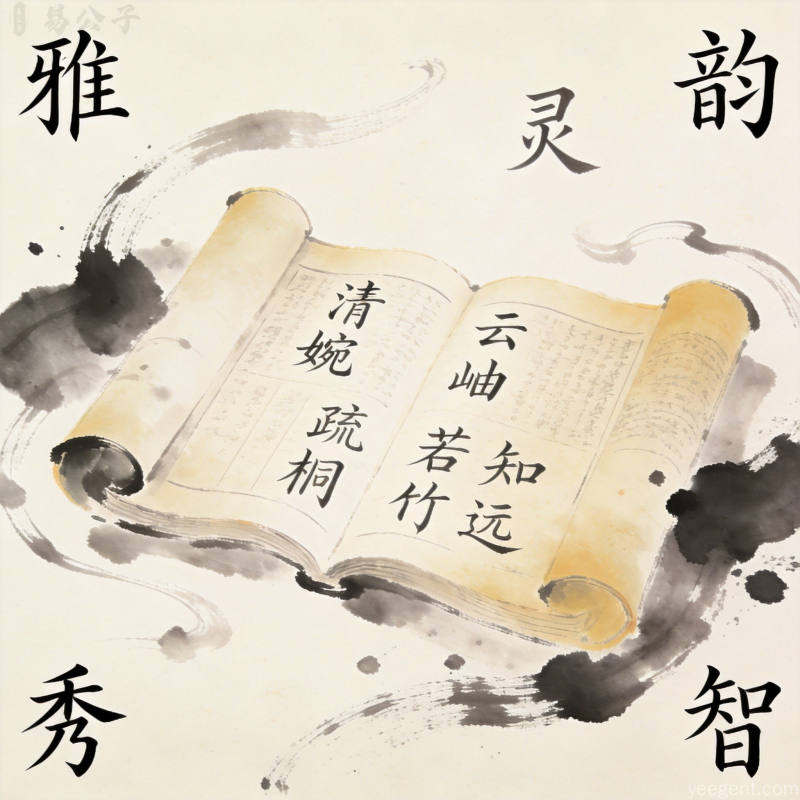 易公子
雅
韵
灵
清婉
疏桐
云岫
若竹
知远
秀
智
yeegent.com